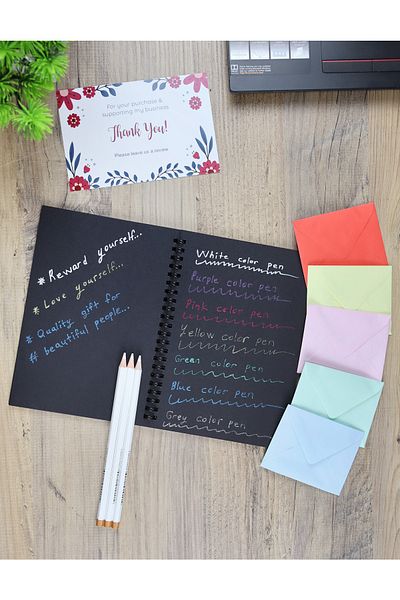 For your purchase &
supporting my business.
Thank You!
Please leave us a review
* Reward yourself...
* Love yourself...
* Quality gift for
# beautiful people...
White color pen
Purple color pen
Pink color pen
Yellow color pen
Green color pen
Blue color pen
Grey color pen